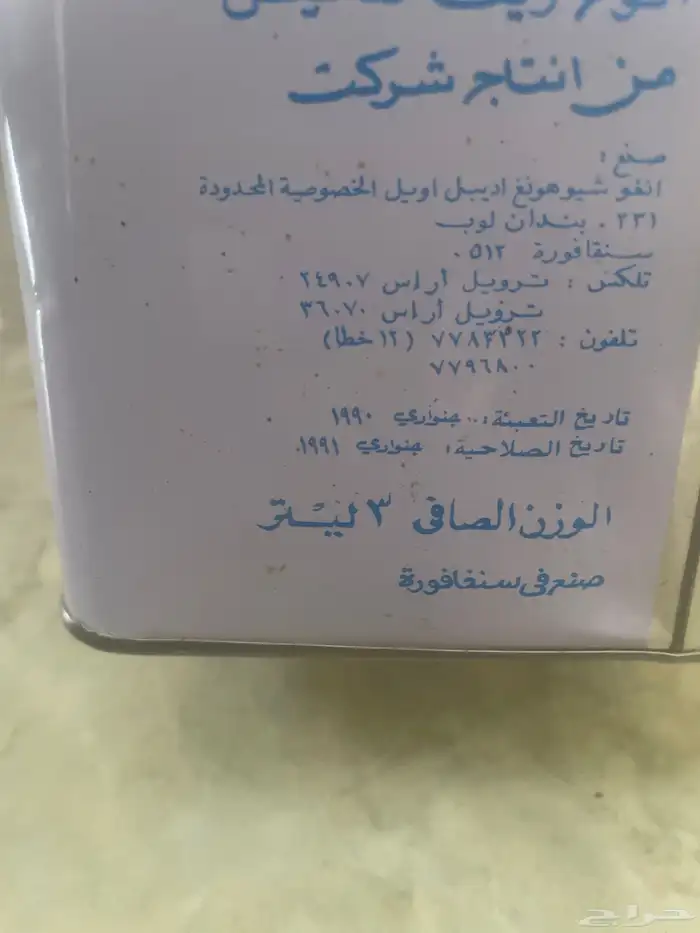 من انتاج شركت
صنع :
انفو شيو هونغ اديبل اويل الخصوصية المحدودة
٢٣١ . بندان لوب
سنقافورة ٥١٢ .
تلكس : ترويل أراس ٢٤٩٠٧
ترويل أراس ٣٦٠٧٠
تلفون : ٧٧٨٣٣٢٢ (١٢ خطا)
٧٧٩٦٨٠٠
تاريخ التعبئة: جنواري ١٩٩٠
تاريخ الصلاحية: جنواري ١٩٩١
الوزن الصافى ٣ ليتر
صنع فى سنغافورة
حراج